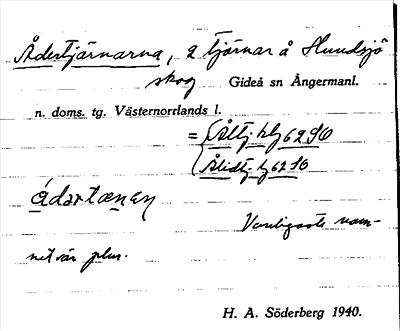 Ådertjärnarna, 2 tjärnar å Hundsjö
skog Gideå sn Ångermanl.
n. doms. tg. Västernorrlands l.
= { Åltj. kbj 62 SO
{ Ålidtj. hj 62 SO
ådartænen
Vanligaste nam-
net är plur.
H. A. Söderberg 1940.